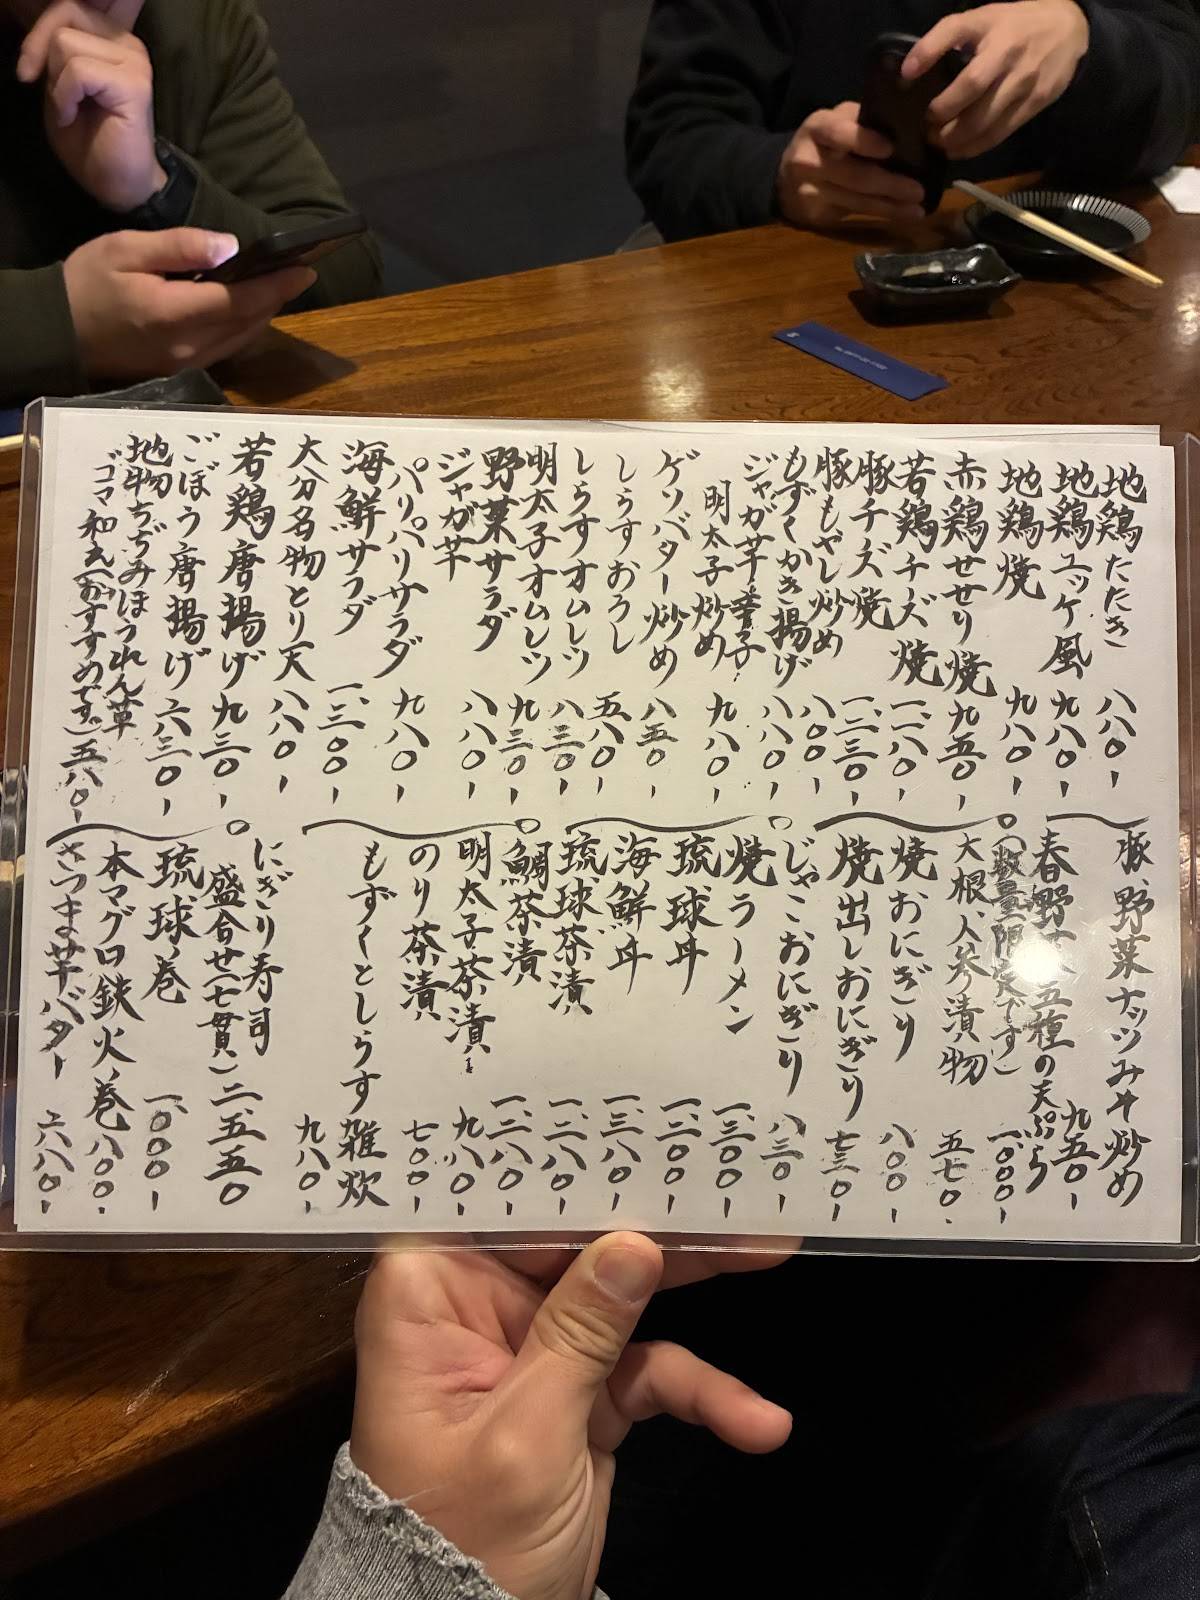 地鶏たたき 八八〇-
地鶏ユッケ風 九八〇-
地鶏焼 九八〇-
赤鶏せせり焼 九五〇-
若鶏チーズ焼 一、一八〇-
豚チーズ焼 一、二三〇-
豚もやし炒め 八〇〇-
もずくかき揚げ 八八〇-
ジャガ芋・
明太子炒め 九八〇-
ゲソバター炒め 八五〇-
しらすおろし 五八〇-
しらすオムレツ 八三〇-
明太子オムレツ 九三〇-
野菜サラダ 八八〇-
ジャガ芋
パリパリサラダ 九八〇-
海鮮サラダ 一、三〇〇-
大分名物とり天 八八〇-
若鶏唐揚げ 九三〇-
ごぼう唐揚げ 六三〇-
地物ちぢみほうれん草
ゴマ和え(おすすめです) 五八〇-
豚、野菜ナッツみそ炒め 九五〇-
春野菜五種の天ぷら 一、〇〇〇-
(数量限定です)
大根、人参漬物 五七〇-
焼おにぎり 八〇〇-
焼出しおにぎり
じゃこおにぎり 八三〇-
焼ラーメン 一、三〇〇-
琉球丼 一、二〇〇-
海鮮丼 一、三八〇-
琉球茶漬 一、二八〇-
鯛茶漬 一、二八〇-
明太子茶漬 九八〇-
のり茶漬 七〇〇-
もずくとしらす雑炊 九八〇-
にぎり寿司
盛合せ(七貫) 二、五五〇
琉球巻 一、〇〇〇-
本マグロ鉄火巻 八〇〇-
さつま芋バター 六八〇-